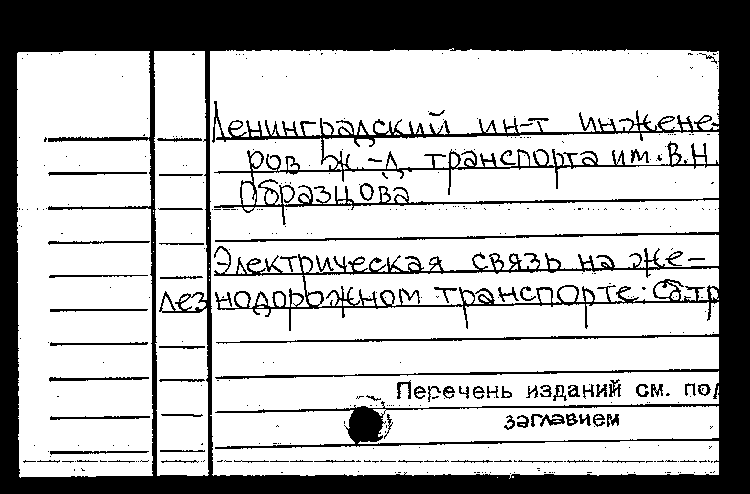 Ленинградский ин-т инжене-
ров ж.-д. транспорта им. В.Н.
Образцова
Электрическая связь на же-
лезнодорожном транспорте: Сб. тр
Перечень изданий см. под
заглавием